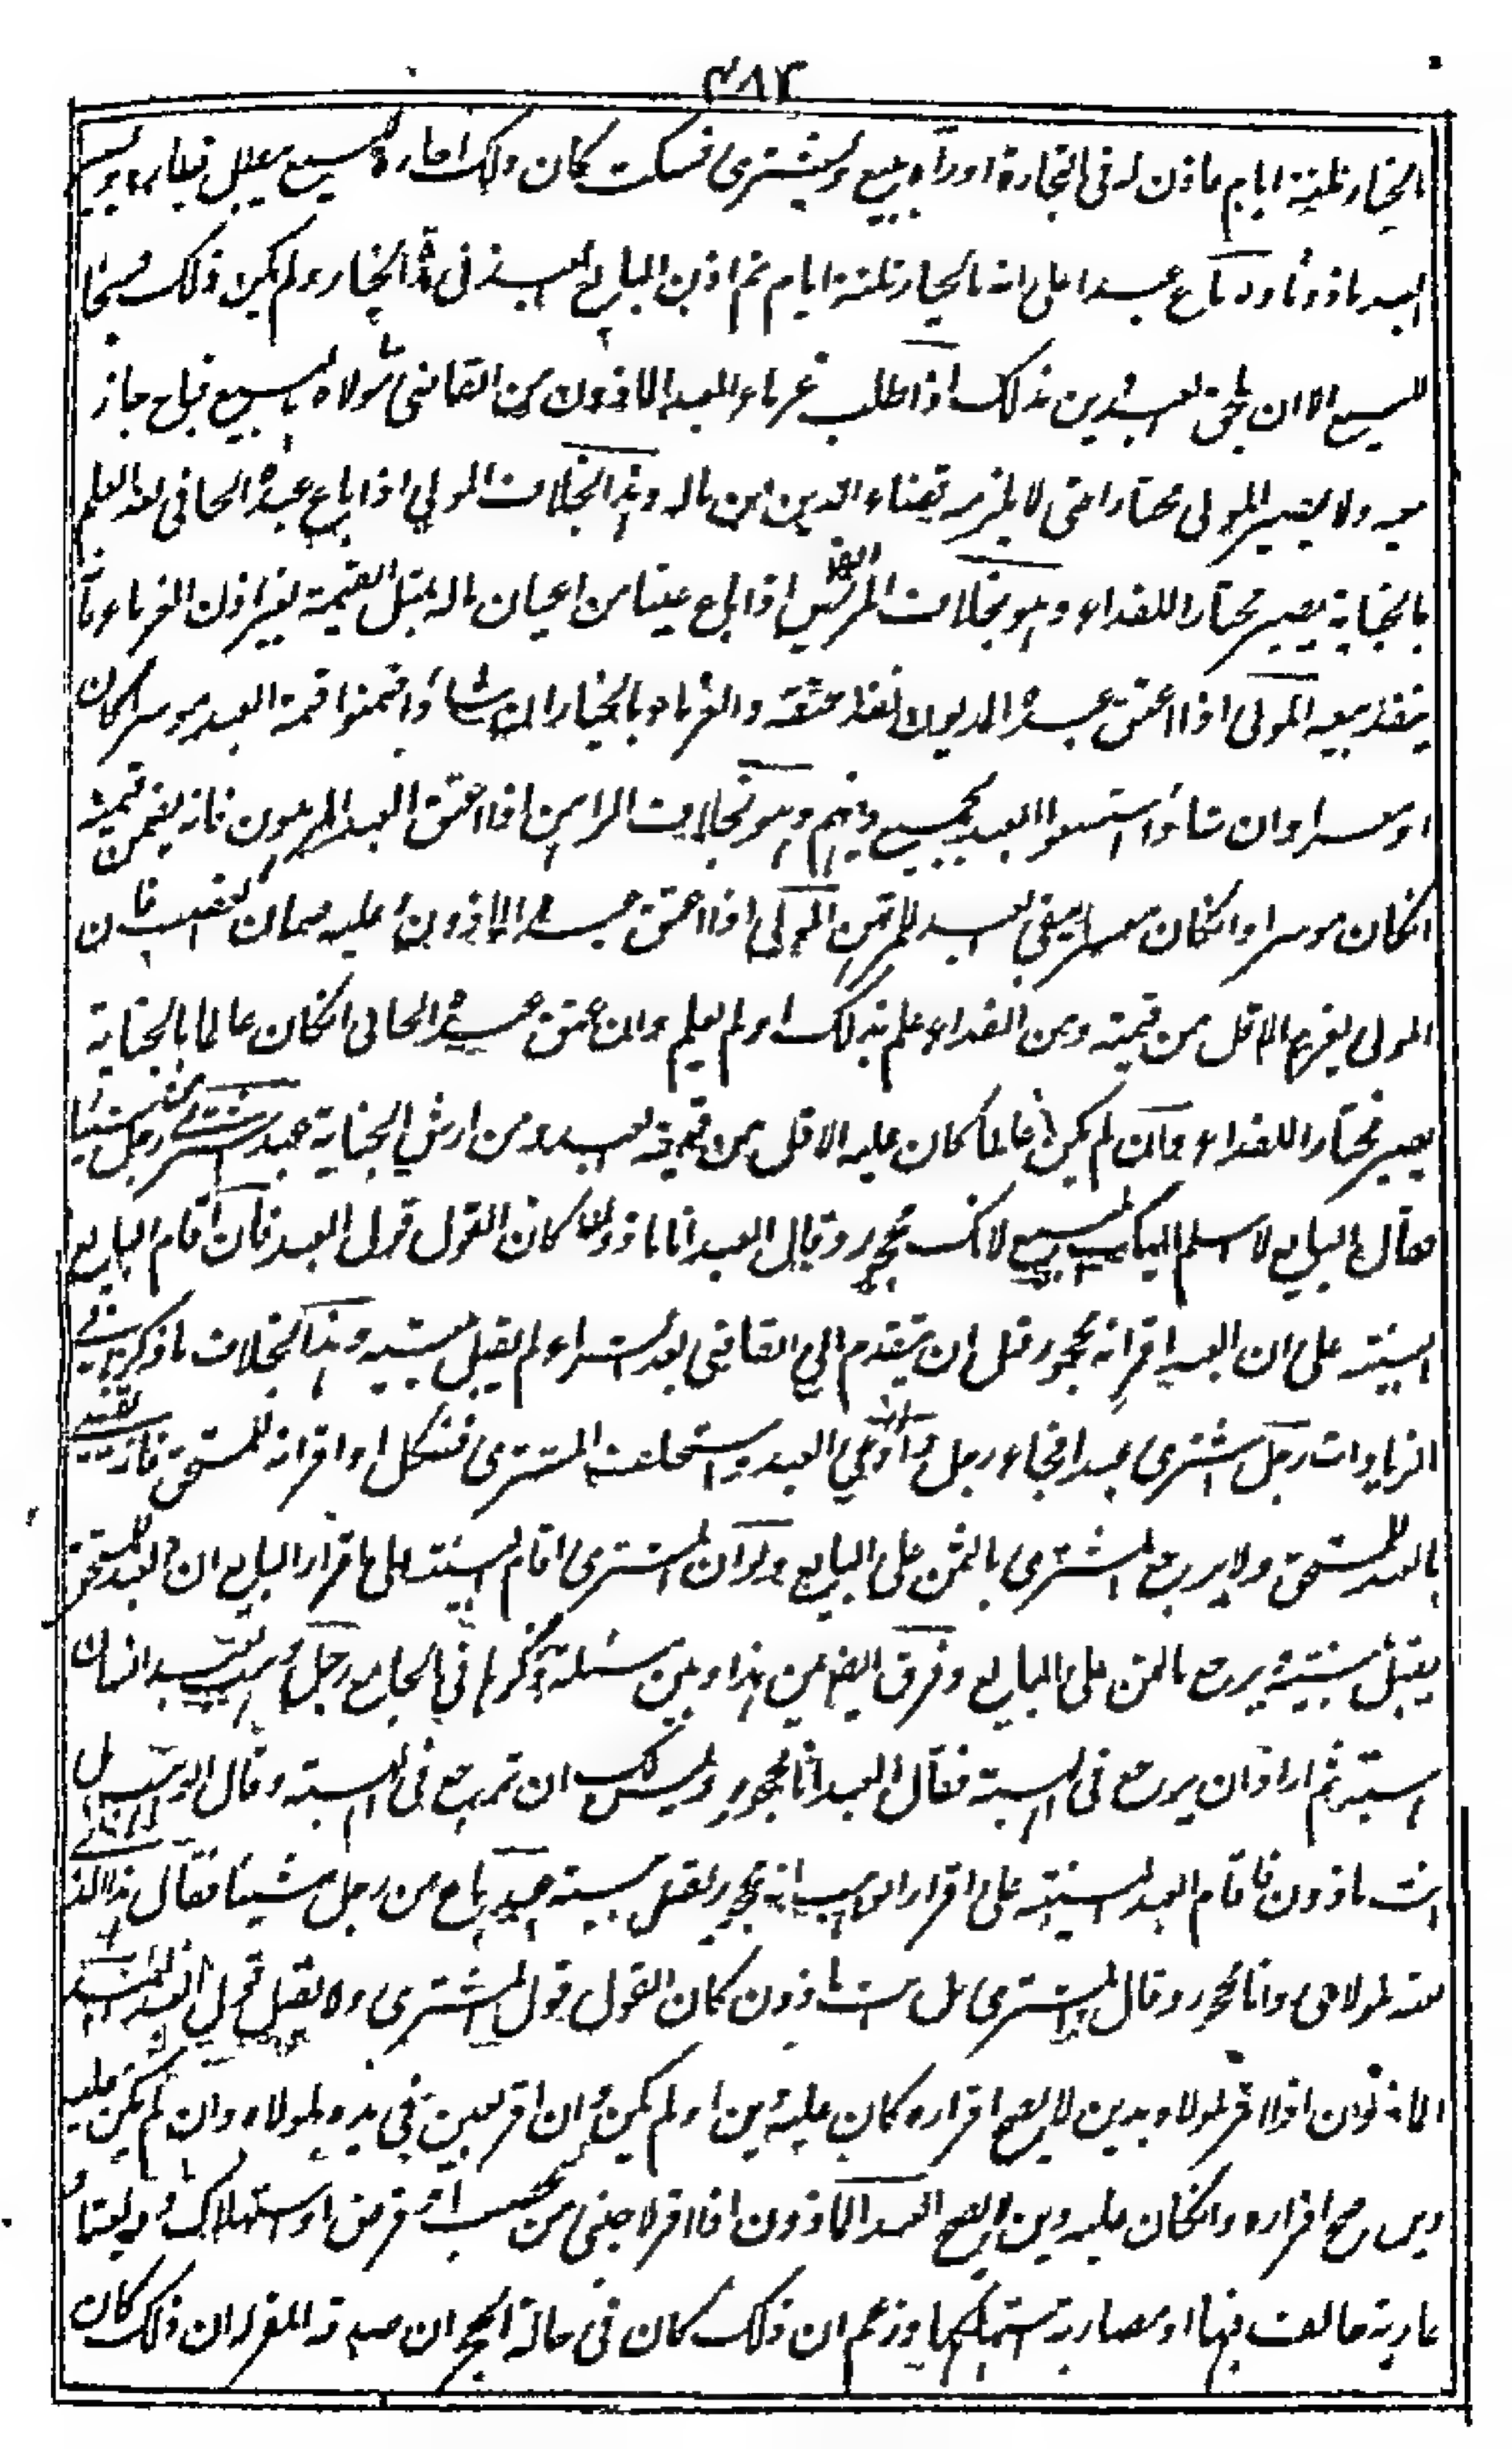 ٣٨٢
بالخيار ثلثة ايام فاذن له في التجارة او رآه يبيع ويشترى فسكت كان ذلك اجازة للبيع ويبطل خياره ويصير
العبد ماذونا ولو باع عبدا على انه بالخيار ثلثة ايام ثم اذن البايع للعبد في مدة الخيار ولم يكن ذلك فسخا
للبيع الا ان يلحق العبد دين بذلك اذا طلب غرماء العبد الماذون من القاضي مولاه بالبيع فباع جاز
بيعه ولا يصير المولى مختارا حتى لا يلزمه قضاء الدين من ماله وهذا بخلاف المولى اذا باع عبده الجاني بعد العلم
بالجناية يصير مختارا للفداء وهو بخلاف المريض اذا باع عينا من اعيان ماله بمثل القيمة بغير اذن الغرماء فانه
ينفذ بيعه المولى اذا اعتق عبده المديون نفذ عتقه والغرماء بالخيار ان شاؤا ضمنوا قيمة العبد موسرا كان
او معسرا وان شاؤا استسعوا العبد بجميع دينهم وهو بخلاف الراهن اذا اعتق العبد المرهون فانه يضمن قيمته
انكان موسرا وانكان معسرا يسعى العبد للمرتهن المولى اذا اعتق عبده الماذون وعليه ضمان الغصب فان
المولى يغرم الاقل من قيمته ومن الفداء علم بذلك او لم يعلم وان عتق عبده الجاني انكان عالما بالجناية
يصير مختارا للفداء وان لم يكن عالما كان عليه الاقل من قيمة العبد ومن ارش الجناية عبد اشترى من رجل شيئا
فقال البايع لا اسلم اليك المبيع لانك محجور وقال العبد انا ماذون كان القول قول العبد فان اقام البايع
البينة على ان العبد اقر انه محجور قبل ان يتقدم الى القاضي بعد الشراء لم يقبل بينته وهذا بخلاف ما ذكر في
الزيادات رجل اشترى عبدا فجاء رجل وادعى العبد واستحلف المشترى فنكل او اقر انه للمستحق فانه يقضى
بالعبد للمستحق ولا يرجع المشترى بالثمن على البايع ولو ان المشترى اقام البينة على اقرار البايع ان العبد للمستحق
يقبل بينته ويرجع بالثمن على البايع وفرق ايضا بين هذا وبين مسئلة ذكرها في الجامع رجل وهب لعبد انسان
هبة ثم اراد ان يرجع في الهبة فقال العبد انا محجور وليس لك ان ترجع في الهبة وقال الواهب بل
انت ماذون فاقام العبد البينة على اقرار الواهب انه محجور يقبل بينته عبد باع من رجل شيئا فقال هذا الذي
بعته لمولاى وانا محجور وقال المشترى بل انت ماذون كان القول قول المشترى ولا يقبل قول العبد
الماذون اذا اقر لمولاه بدين لا يصح اقراره كان عليه دين او لم يكن وان اقر بعين في يده لمولاه وان لم يكن عليه
دين صح اقراره وانكان عليه دين لا يصح العبد الماذون اذا اقر لاجنبي من غصب او قرض او استهلاك وديعة او
عارية خالف فيها او مضاربة استهلكها وزعم ان ذلك كان في حالة الحجر ان صدقه المقر له ان ذلك كان